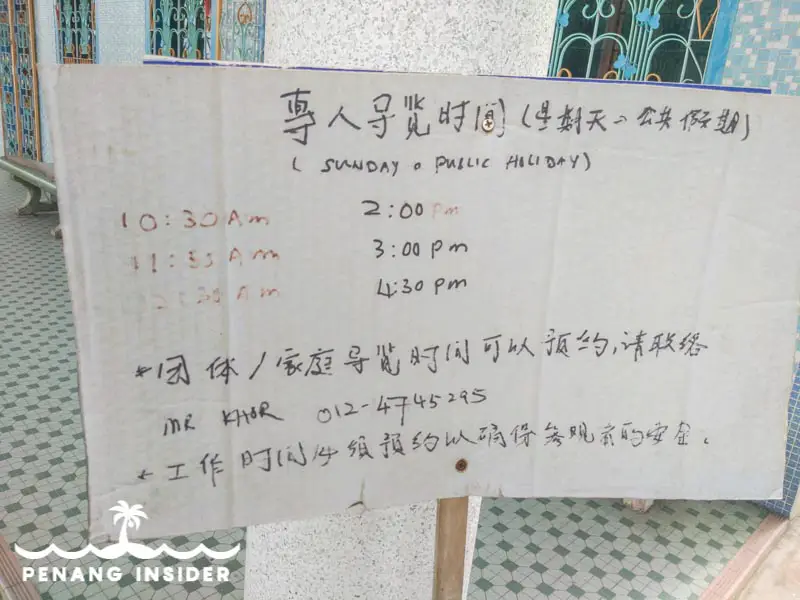 專人导览时间(星期天、公共假期)
( SUNDAY o PUBLIC HOLIDAY)
10:30 Am 2:00 Pm
11:35 Am 3:00 Pm
2:30 Am 4:30 Pm
*团体/家庭导览时间可以预约,请联络
MR KHOR 012-4745295
*工作时间必须预约以确保参观者的安全。
PENANG INSIDER